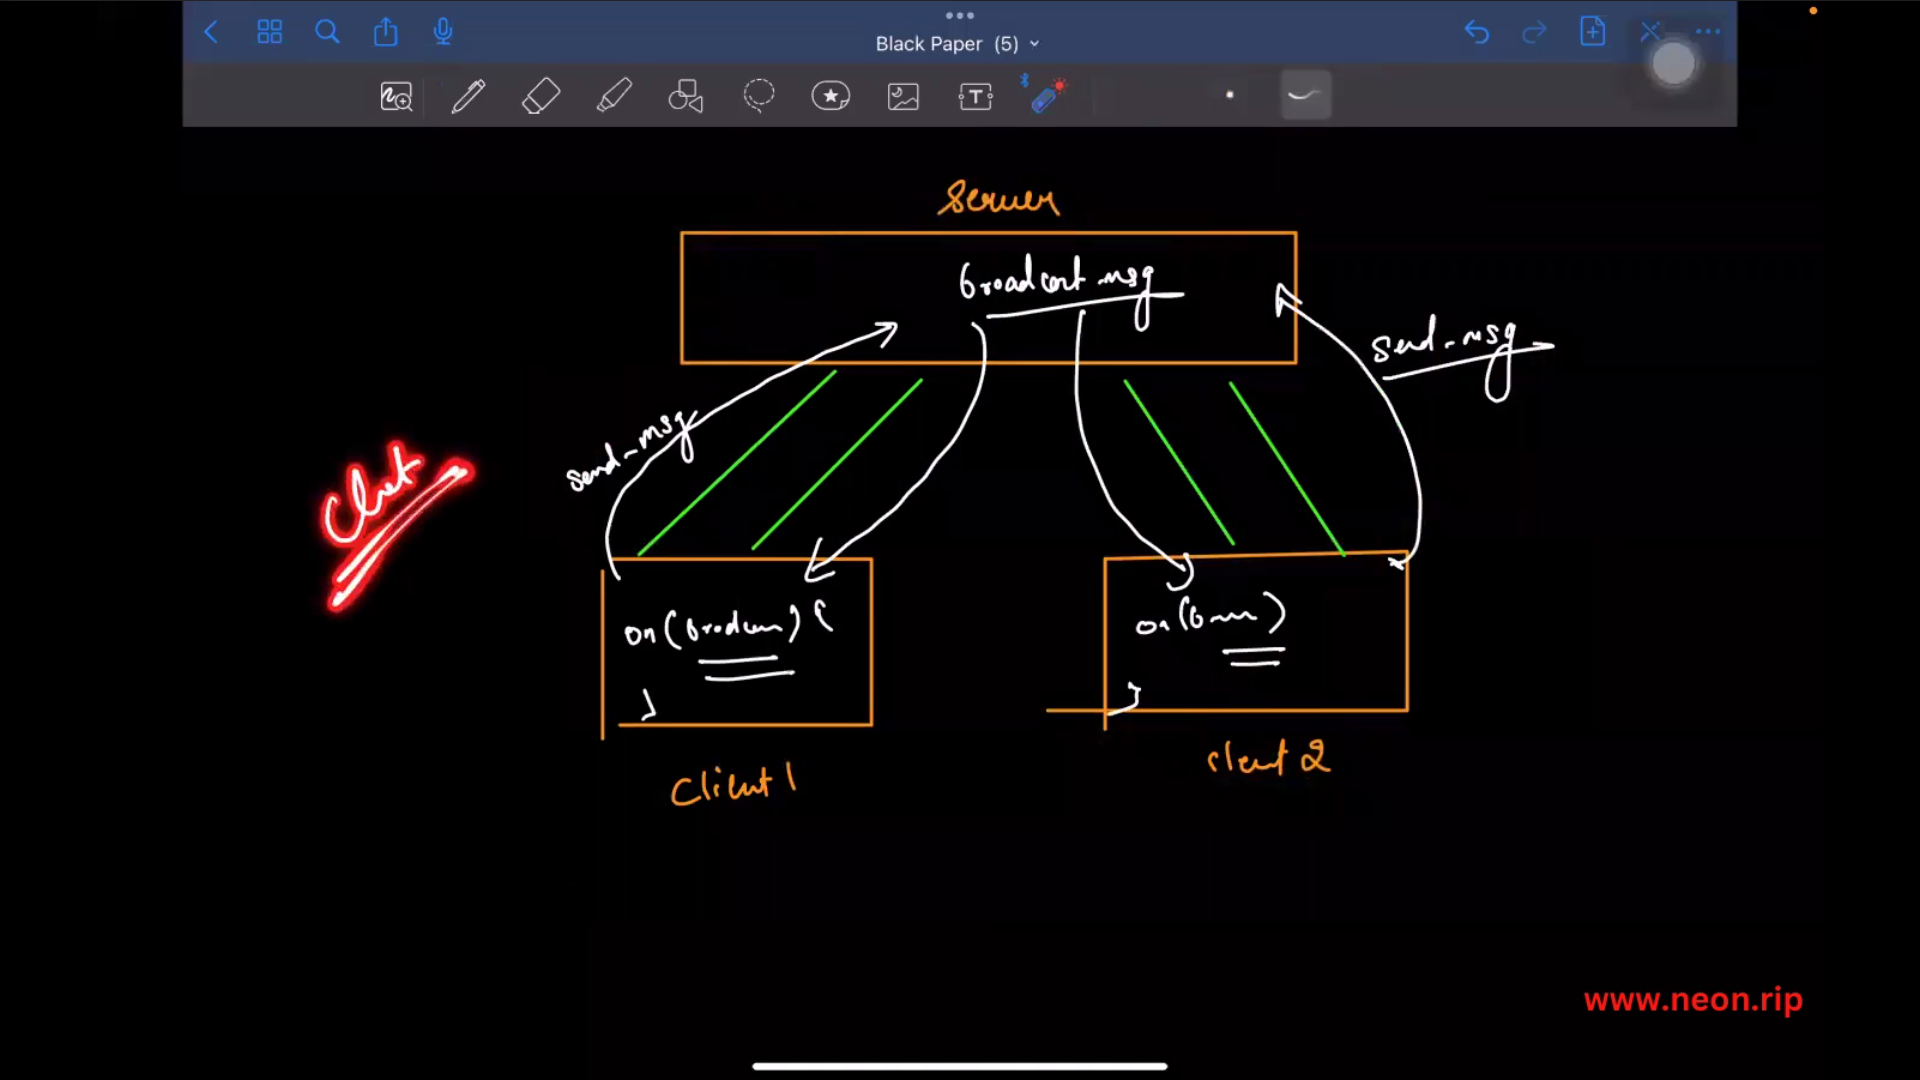 Black Paper (5)
Server
broadcast_msg
send_msg
send_msg
Chat
on(
on(
)
Client 1
client 2
www.neon.rip